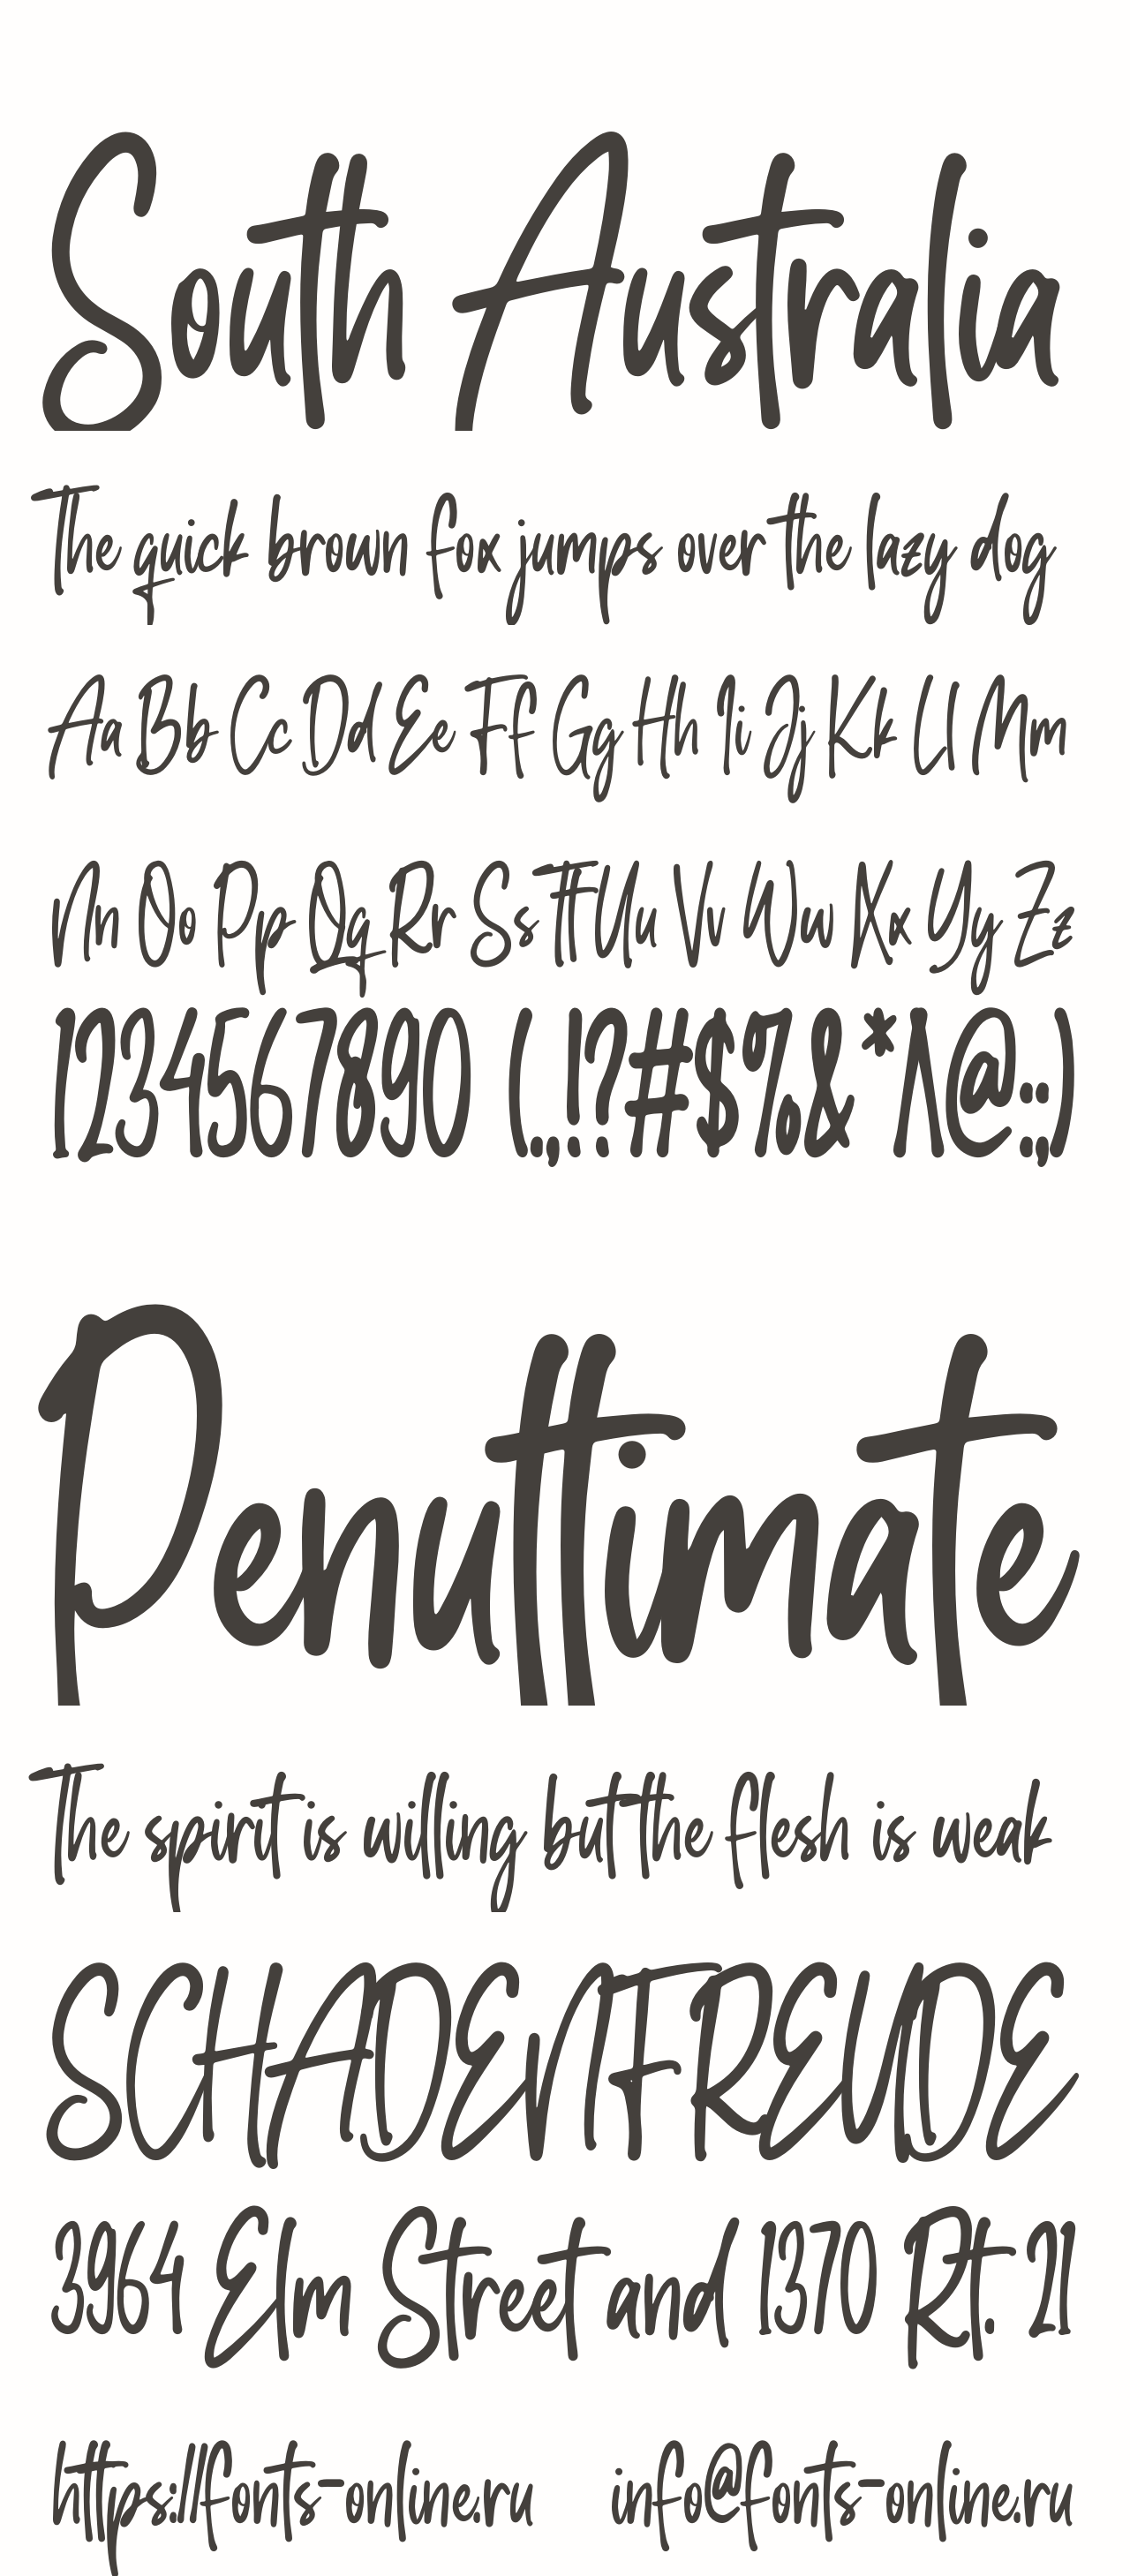 South Australia
The quick brown fox jumps over the lazy dog
Aa Bb Cc Dd Ee Ff Gg Hh Ii Jj Kk Ll Mm
Nn Oo Pp Qq Rr Ss Tt Uu Vv Ww Xx Yy Zz
1234567890 (.,!?#$%&*^@:;)
Penuttimate
The spirit is willing but the flesh is weak
SCHADENFREUDE
3964 Elm Street and 1370 Rt. 21
https://fonts-online.ru info@fonts-online.ru